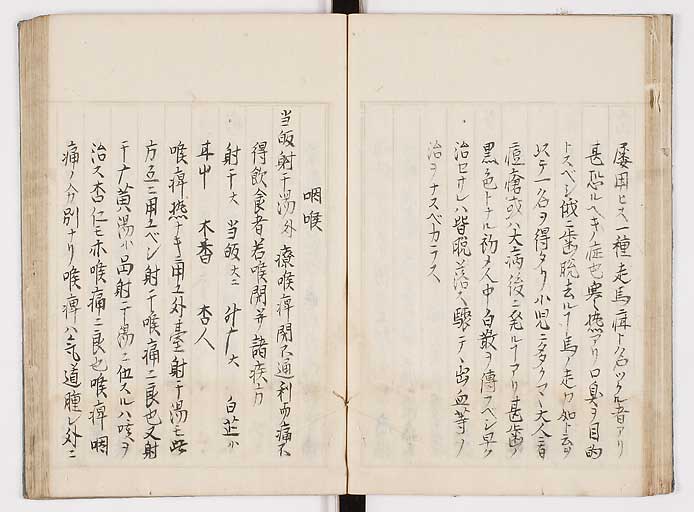 屡因ヒス一種走馬疳ト名ツクル者アリ
甚恐ルヘキノ症也寒熱アリ口臭ヲ目的
トスベシ俄ニ歯脱去ルヿ馬ノ走ルカ如シト云ヲ
以テ名ヲ得タリ小児ニ多クマヽ大人ニモ
痘瘡或ハ大病後ニ発ルヿアリ甚歯
黒色トナル初メ人中白散ヲ傳フベシ早ク
治セサレハ皆脱落ス驟ニテ出血等ノ
治ヲナスベカラス
咽喉
当皈射干湯 外 療喉痺閉不通利而痛不
得飲食者若喉閉并諸疾方
射干 大 当皈 大 升广 大 白芷 小
甘中 木香 杏人
喉痺熱ナキニ用ユ外臺射干湯モ此
方互ニ用ユベシ射干喉痛ニ良也又射
干广黄湯小品射干湯ニ伍スルハ咳ヲ
治ス杏仁モ亦喉痛ニ良也喉痺咽
痛ノ分別ナリ喉痺ハ気道腫レ外ニ